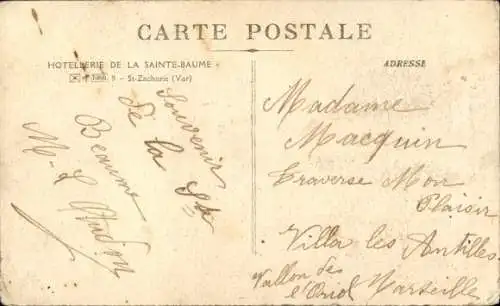 CARTE POSTALE
HOTELLERIE DE LA SAINTE-BAUME
9 - St-Zacharie (Var)
ADRESSE
Souvenir
de la Ste
Beaume
M. L.
Madame
Macquin
Traverse Mon
Plaisir
Villa les Antilles
Vallon des
l'Oriol Marseille